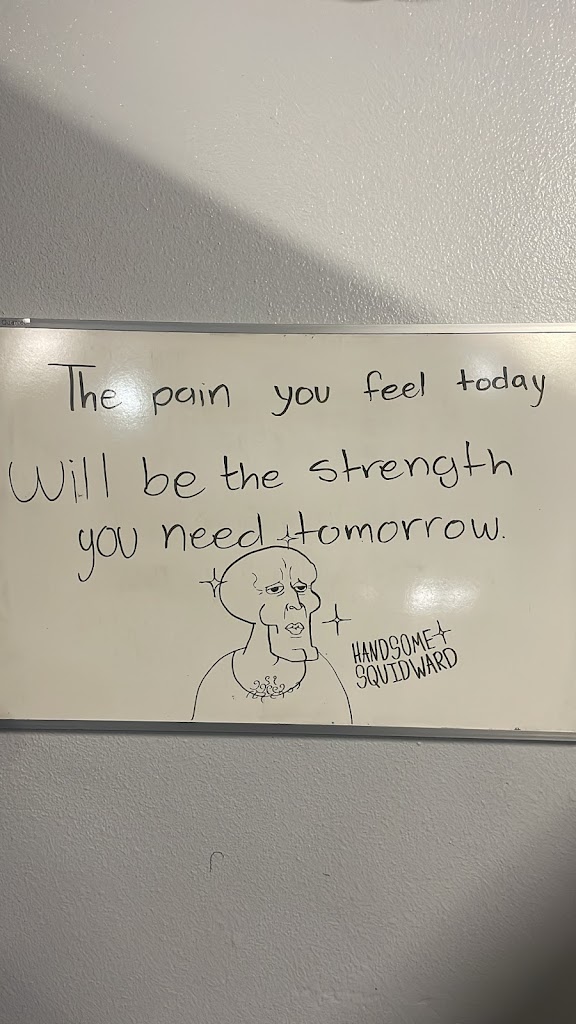 The pain you feel today
Will be the strength
you need tomorrow.
HANDSOME
SQUIDWARD